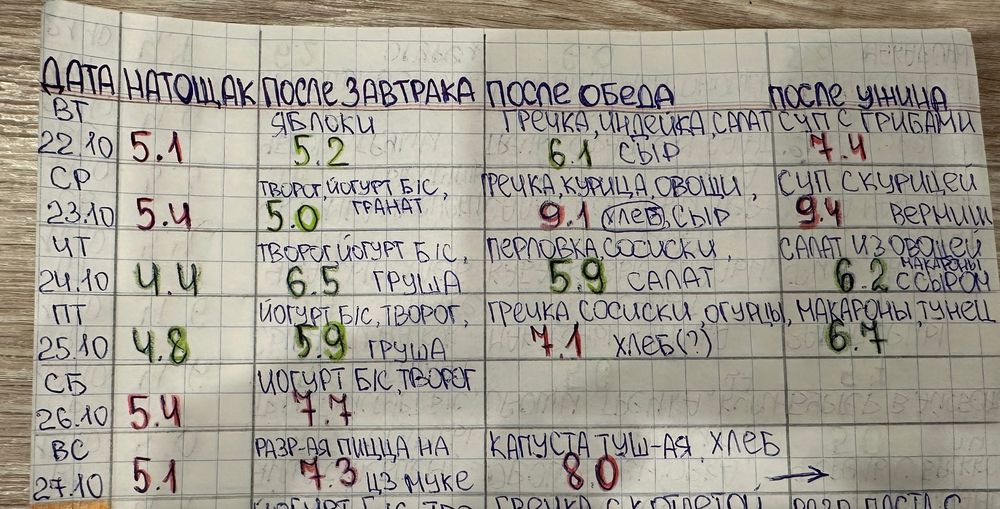 ДАТА НАТОЩАК ПОСЛЕ ЗАВТРАКА ПОСЛЕ ОБЕДА ПОСЛЕ УЖИНА
ВТ ЯБЛОКИ ГРЕЧКА, ИНДЕЙКА, САЛАТ СУП С ГРИБАМИ
22.10 5.1 5.2 6.1 СЫР 7.4
СР ТВОРОГ, ЙОГУРТ Б/С, ГРЕЧКА, КУРИЦА, ОВОЩИ, СУП С КУРИЦЕЙ
23.10 5.4 5.0 ГРАНАТ 9.1 ХЛЕБ, СЫР 9.4 ВЕРМИШ
ЧТ ТВОРОГ, ЙОГУРТ Б/С, ПЕРЛОВКА, СОСИСКИ, САЛАТ ИЗ ОВОЩЕЙ
24.10 4.4 6.5 ГРУША 5.9 САЛАТ 6.2 МАКАРОНЫ С СЫРОМ
ПТ ЙОГУРТ Б/С, ТВОРОГ, ГРЕЧКА СОСИСКИ, ОГУРЦЫ, МАКАРОНЫ, ТУНЕЦ
25.10 4.8 5.9 ГРУША 7.1 ХЛЕБ(?) 6.7
СБ ЙОГУРТ Б/С, ТВОРОГ
26.10 5.4 7.7
ВС РАЗР-АЯ ПИЦЦА НА КАПУСТА ТУШ-АЯ, ХЛЕБ
27.10 5.1 7.3 ЦЗ МУКЕ 8.0 →